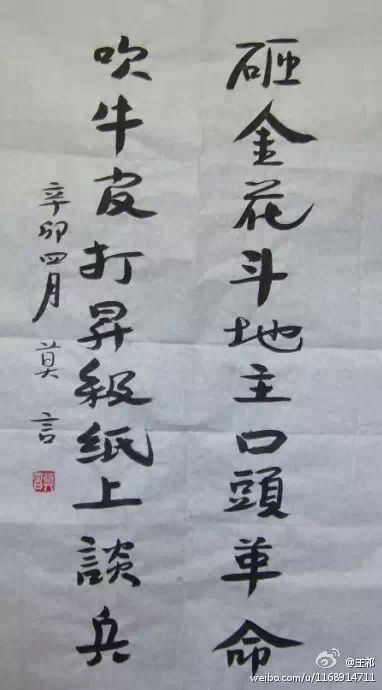 砸金花斗地主口頭革命
吹牛皮打昇級纸上談兵
辛卯四月 莫言
@王祁
weibo.com/u/1168914711